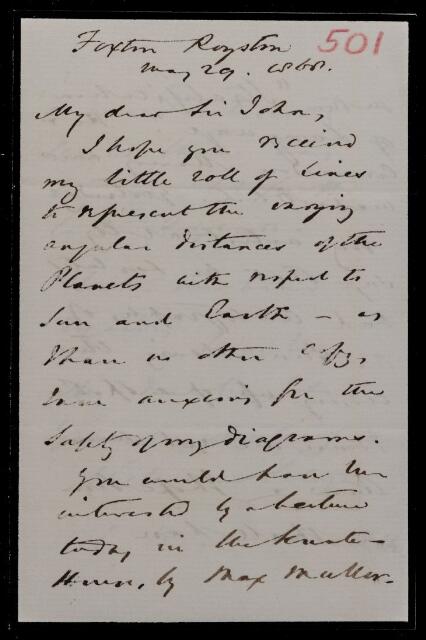 Foxton Royston
501
May 29. 1868.
My dear Sir John,
I hope you received
my little roll of Lines
to represent the varying
angular distances of the
Planets with respect to
Sun and Earth – as
I have no other copy,
I am anxious for the
Safety of my diagrams.
You would have been
interested by a lecture
today in the Senate-
House, by Max Muller-